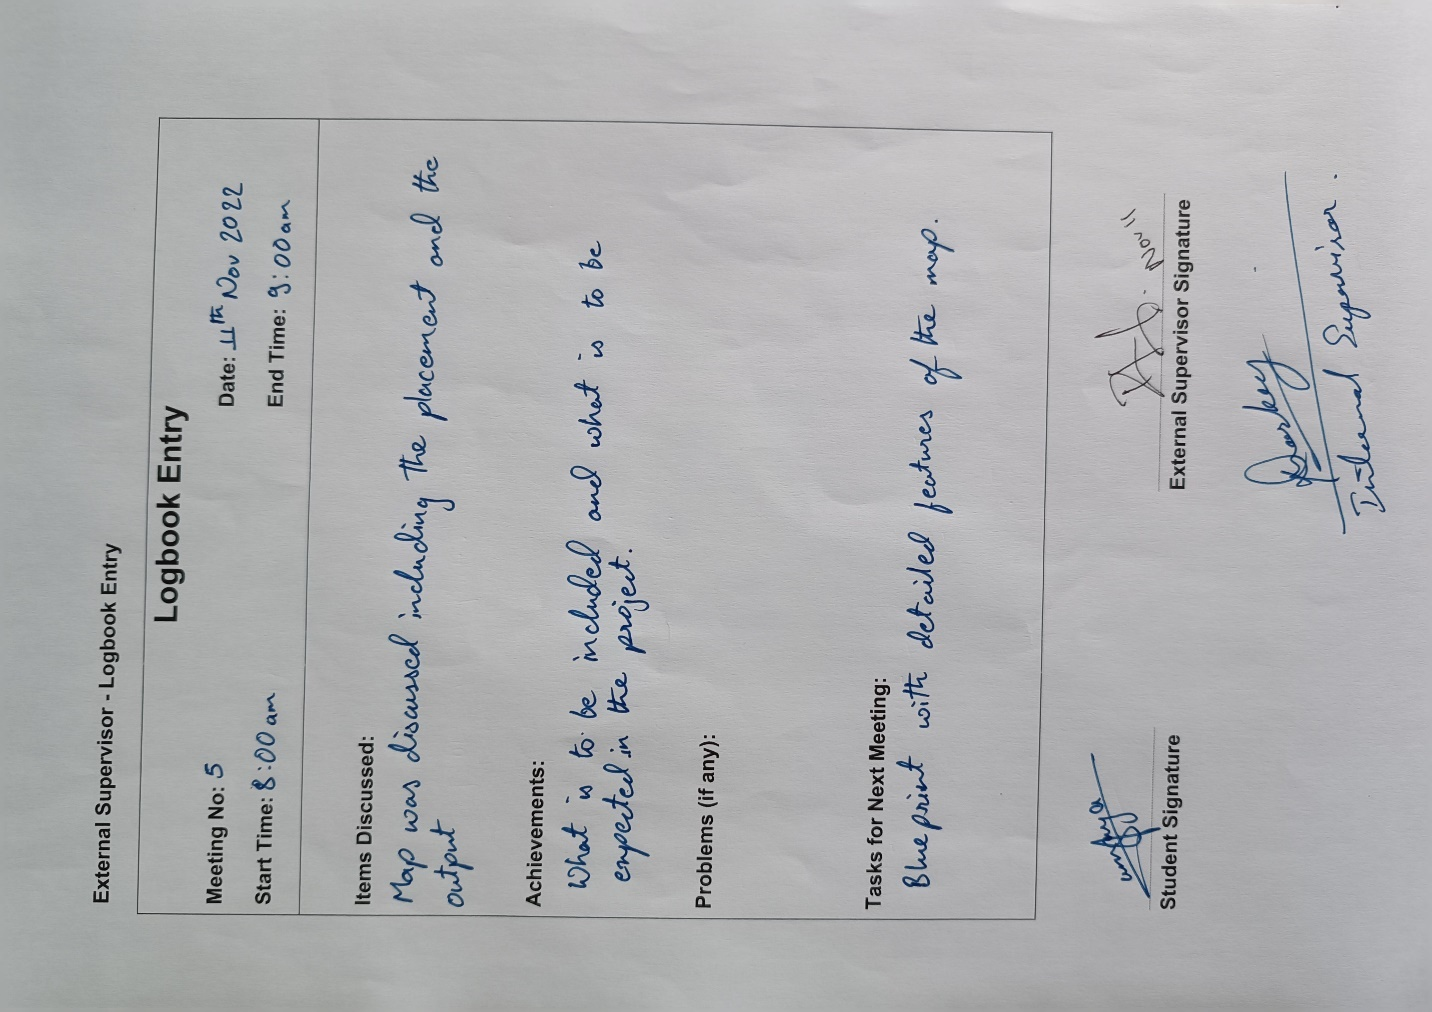 External Supervisor - Logbook Entry
Logbook Entry
Meeting No: 5 Date: 11th Nov 2022
Start Time: 8:00 am End Time: 9:00 am
Items Discussed:
Map was discussed including the placement and the
output
Achievements:
What is to be included and what is to be
expected in the project.
Problems (if any):
Tasks for Next Meeting:
Blue print with detailed features of the map.
Nov 11
Student Signature External Supervisor Signature
Internal Supervisor.